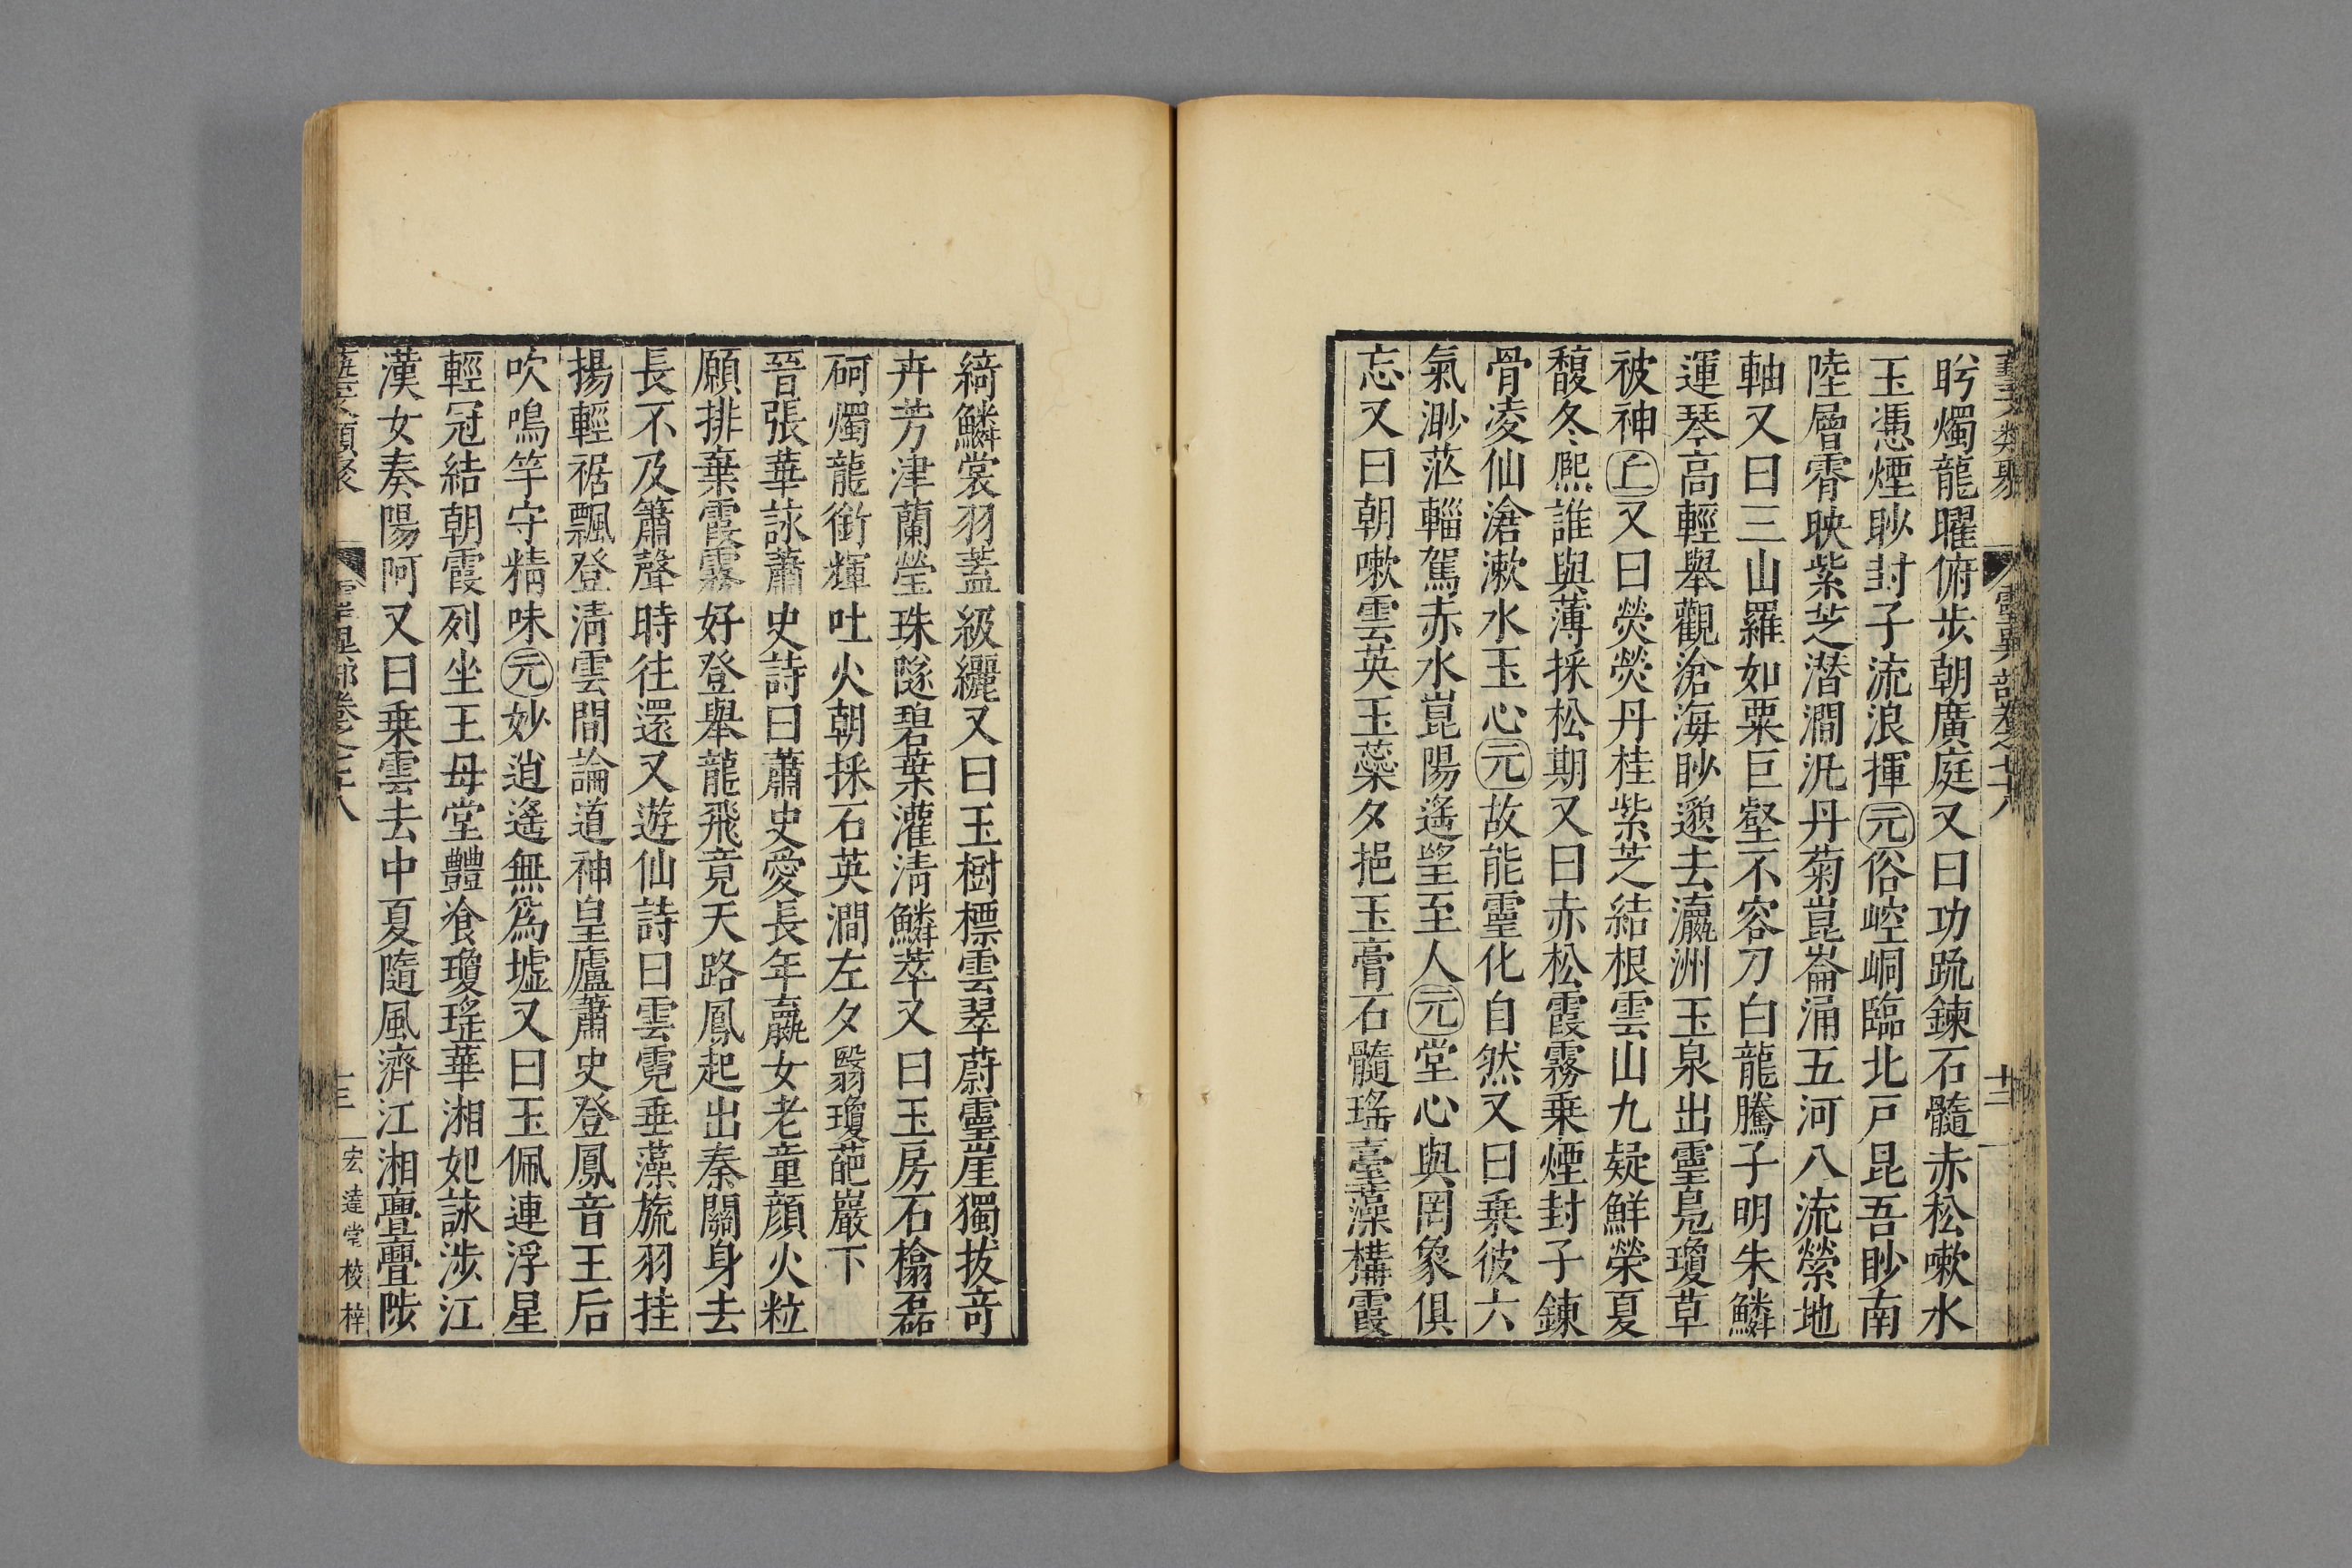 藝文類聚 靈異部卷之七十八 十二
盻燭龍曜俯步朝廣庭又曰功䟽鍊石髓赤松嗽水
玉憑煙眇封子流浪揮元俗崆峒臨北戸昆吾眇南
陸層霄映紫芝潜澗汎丹菊崑崙涌五河八流縈地
軸又曰三山羅如粟巨壑不容刀白龍騰子明朱鱗
運琴高輕舉觀滄海眇邈去瀛洲玉泉出靈鳬瓊草
被神丘又曰熒熒丹桂紫芝結根雲山九疑鮮榮夏
馥冬熈誰與薄採松期又曰赤松霞霧乗煙封子鍊
骨凌仙滄漱水玉心元故能靈化自然又曰乗彼六
氣渺茫輜駕赤水崑陽遙望至人元堂心與罔象俱
忘又曰朝嗽雲英玉蘂夕挹玉膏石髓瑤臺藻構霞
綺鱗裳羽蓋級纚又曰玉樹標雲翠蔚靈崖獨拔竒
卉芳津蘭瑩珠隧碧葉灌清鱗萃又曰玉房石榻磊
砢燭龍銜輝吐火朝採石英澗左夕翳瓊葩巖下
晉張華詠蕭史詩曰蕭史愛長年嬴女老童顔火粒
願排棄霞霧好登舉龍飛竟天路鳳起出秦關身去
長不及簫聲時往還又遊仙詩曰雲霓垂藻旒羽挂
揚輕裾飄登清雲間論道神皇廬蕭史登鳳音王后
吹鳴竽守精味元妙逍遙無為墟又曰玉佩連浮星
輕冠結朝霞列坐王母堂豔飡瓊瑤華湘妃詠涉江
漢女奏陽阿又曰乗雲去中夏隨風濟江湘亹亹陟
藝文類聚 靈異部卷之七十八 十三 宏達堂校梓